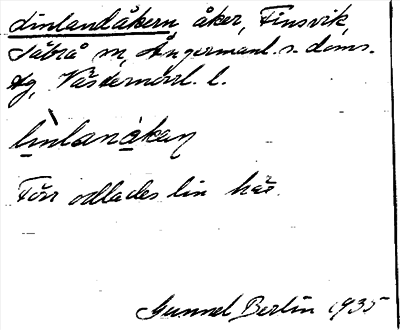 Linlandåkern åker, Finsvik,
Säbrå sn, Ångermanl. s. doms-
ag, Västernorrl. l.
linlanåken
Förr odlades lin här.
Gunnel Berlin 1935